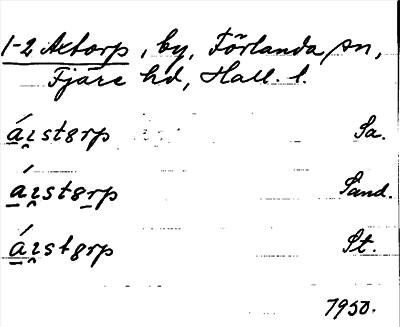 1-2 Axtorp, by, Förlanda sn,
Fjäre hd, Hall. l.
áı̯stɞrp Sa.
áı̯stɞrp Sand.
áı̯stɞrp St.
1950.